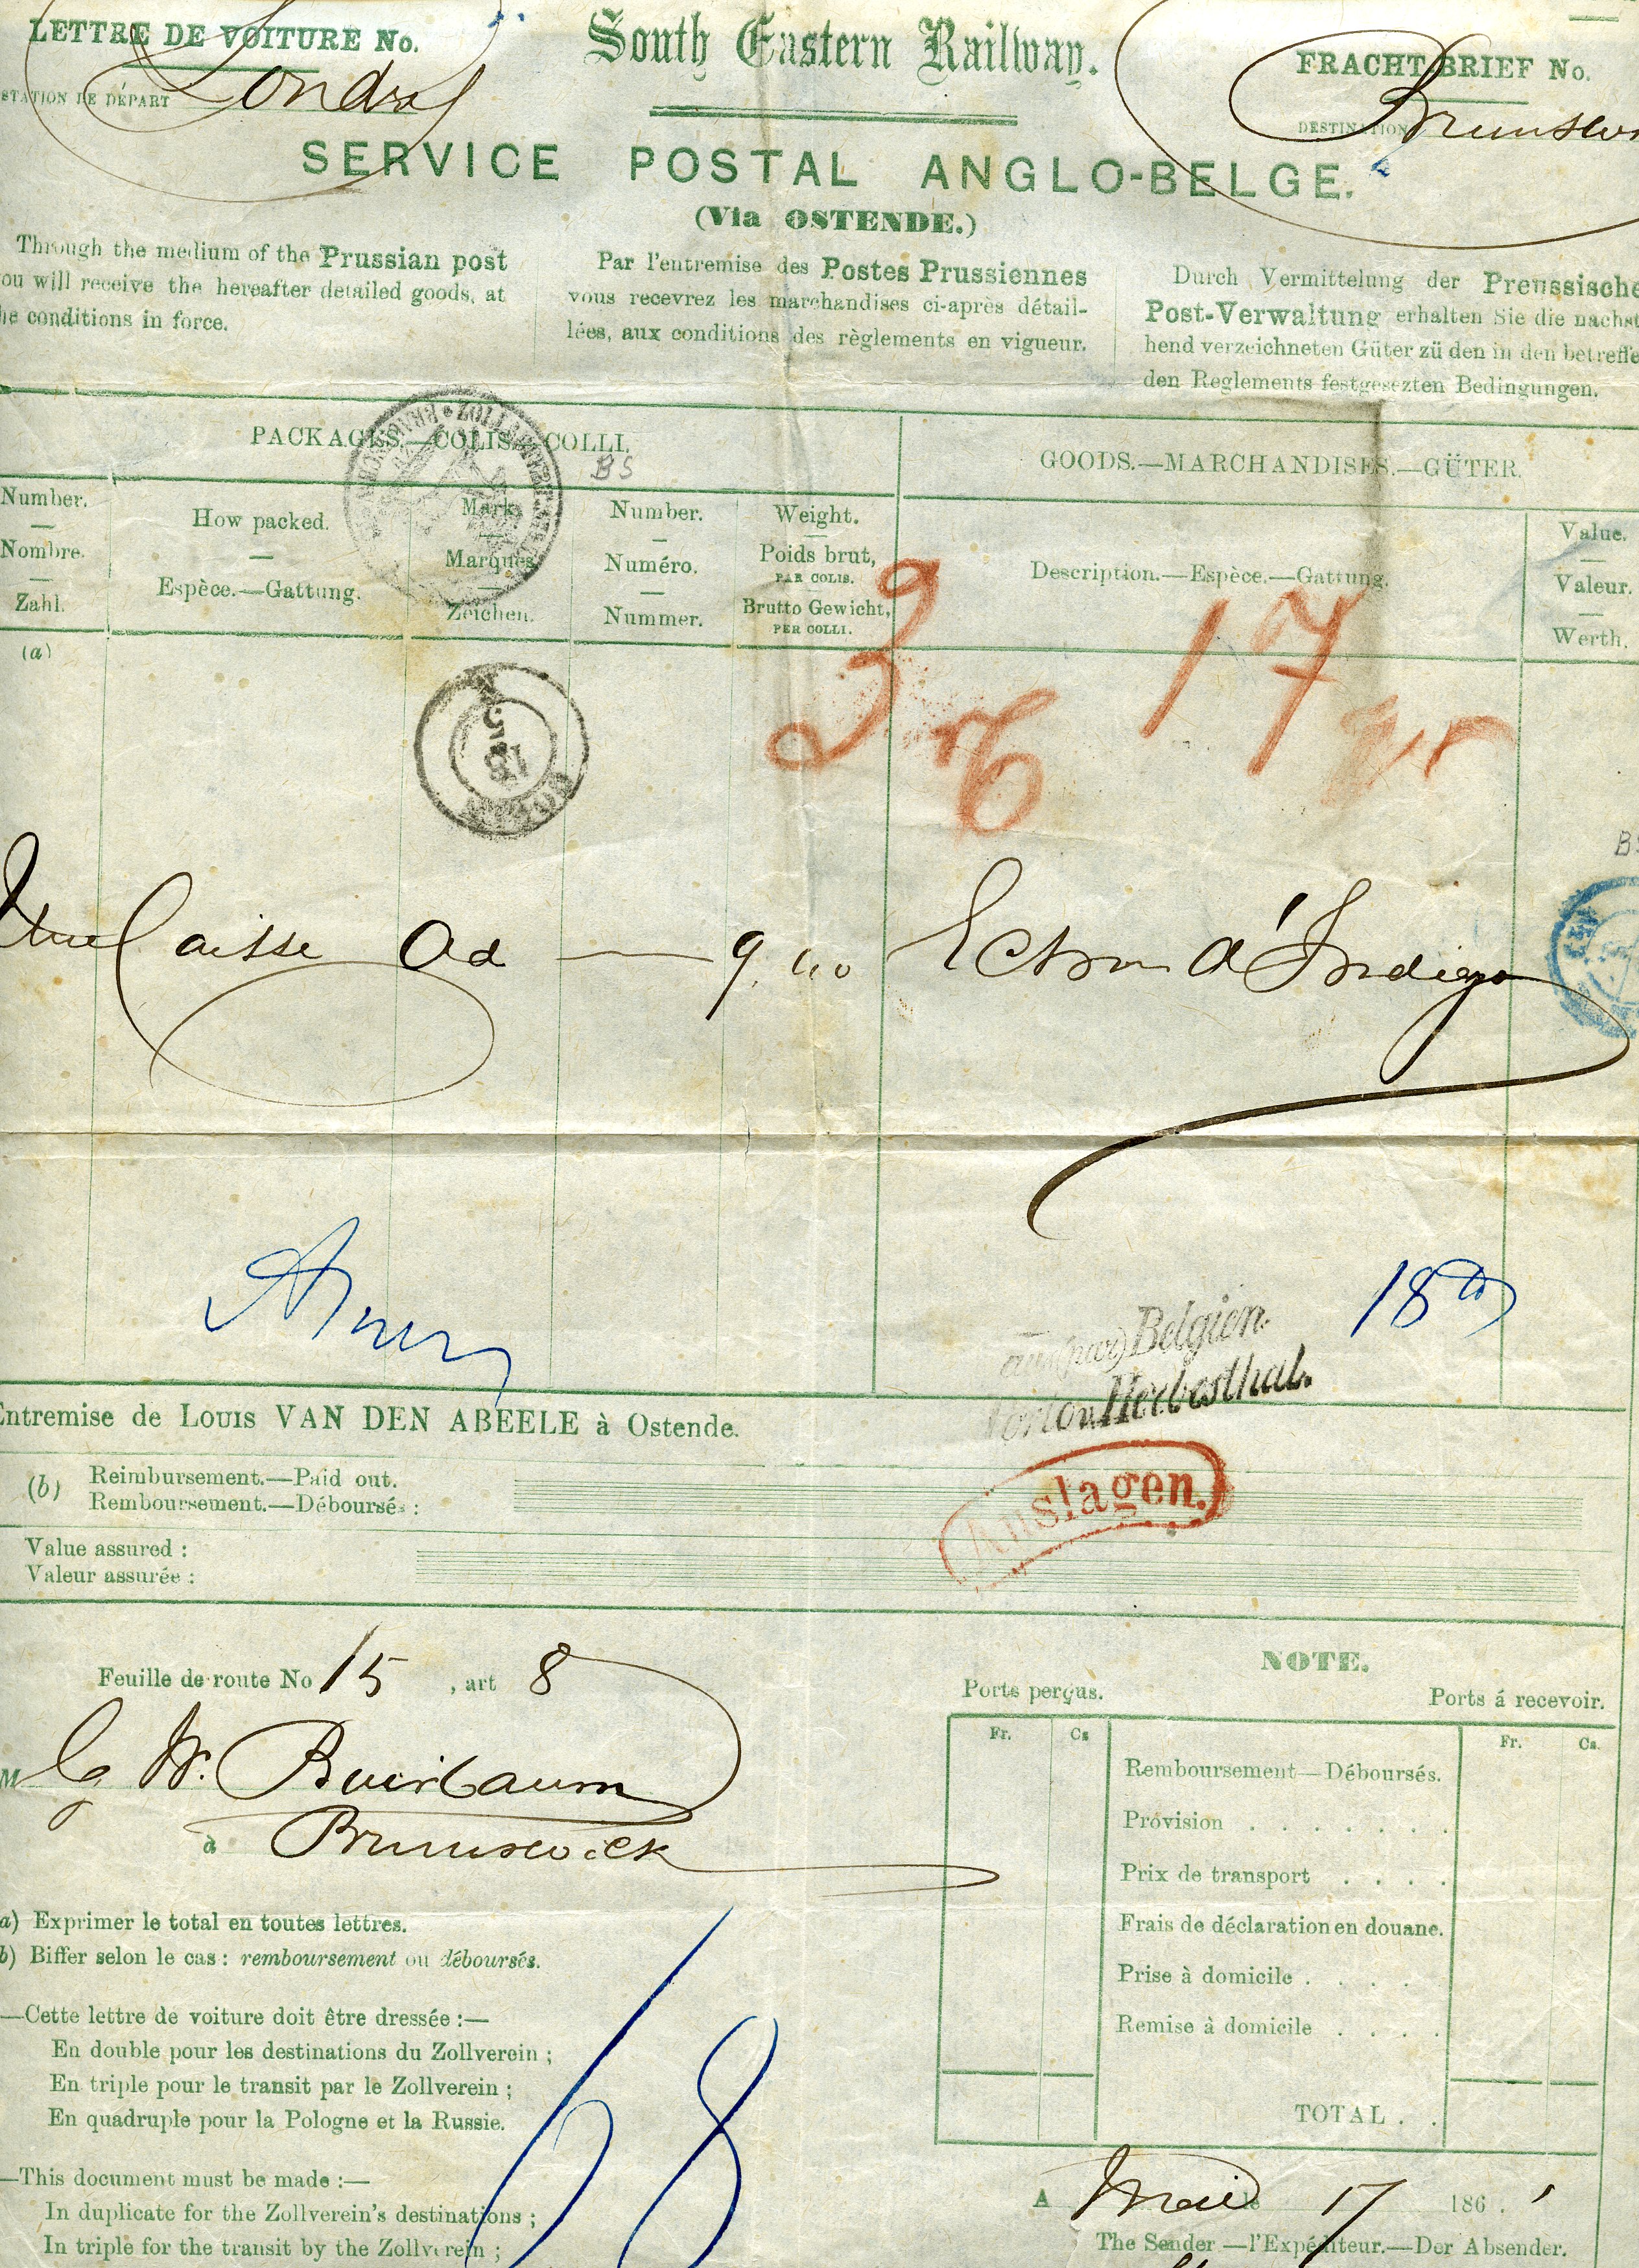 LETTRE DE VOITURE No.
South Eastern Railway.
FRACHT-BRIEF No.
STATION DE DÉPART Londres
DESTINATION
SERVICE POSTAL ANGLO-BELGE.
(Via OSTENDE.)
Through the medium of the Prussian post
ou will receive the hereafter detailed goods, at
he conditions in force.
Par l'entremise des Postes Prussiennes
vous recevrez les marchandises ci-après détail-
lées, aux conditions des règlements en vigueur.
Durch Vermittelung der Preussische
Post-Verwaltung erhalten Sie die nachst
hend verzeichneten Güter zü den in den betreffe
den Reglements festgesezten Bedingungen.
PACKAGES.—COLIS.—COLLI.
BS
GOODS.—MARCHANDISES.—GÜTER.
Number.
—
Nombre.
—
Zahl.
How packed.
—
Espèce.—Gattung.
Mark.
—
Marques.
—
Zeichen.
Number.
—
Numéro.
—
Nummer.
Weight.
—
Poids brut,
PAR COLIS.
—
Brutto Gewicht,
PER COLLI.
Description.—Espèce.—Gattung.
Value.
—
Valeur.
—
Werth.
(a)
17
Une Caisse Ad — d'Indigo
18
aus (par) Belgien.
Herbesthal.
Entremise de Louis VAN DEN ABEELE à Ostende.
Auslagen.
(b) Reimbursement.—Paid out.
Remboursement.—Déboursés :
Value assured :
Valeur assurée :
Feuille de route No 15 , art 8
M W.
à Brunswick
a) Exprimer le total en toutes lettres.
b) Biffer selon le cas : remboursement ou déboursés.
—Cette lettre de voiture doit être dressée :—
En double pour les destinations du Zollverein ;
En triple pour le transit par le Zollverein ;
En quadruple pour la Pologne et la Russie.
—This document must be made :—
In duplicate for the Zollverein's destinations ;
In triple for the transit by the Zollverein ;
NOTE.
Ports perçus.
Ports á recevoir.
Fr. Cs
Fr. Cs.
Remboursement—Déboursés.
Provision . . . . . . .
Prix de transport . . . .
Frais de déclaration en douane.
Prise à domicile . . . .
Remise à domicile . . . .
TOTAL . .
A Mai le 17 186 . 1
The Sender —l'Expéditeur.—Der Absender.